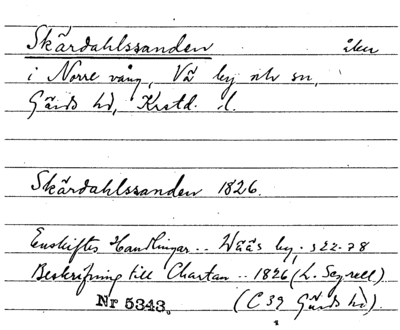 Skärdahlssanden åker
i Norre vång, Vä by och sn,
Gärds hd, Krstd. l.
Skärdahlssanden 1826.
Enskiftes Handlingar .. Wääs by, s 22-78
Beskrifning till Chartan .. 1826 (L. Segrell)
Nr 5343. (C 39 Gärds hd).